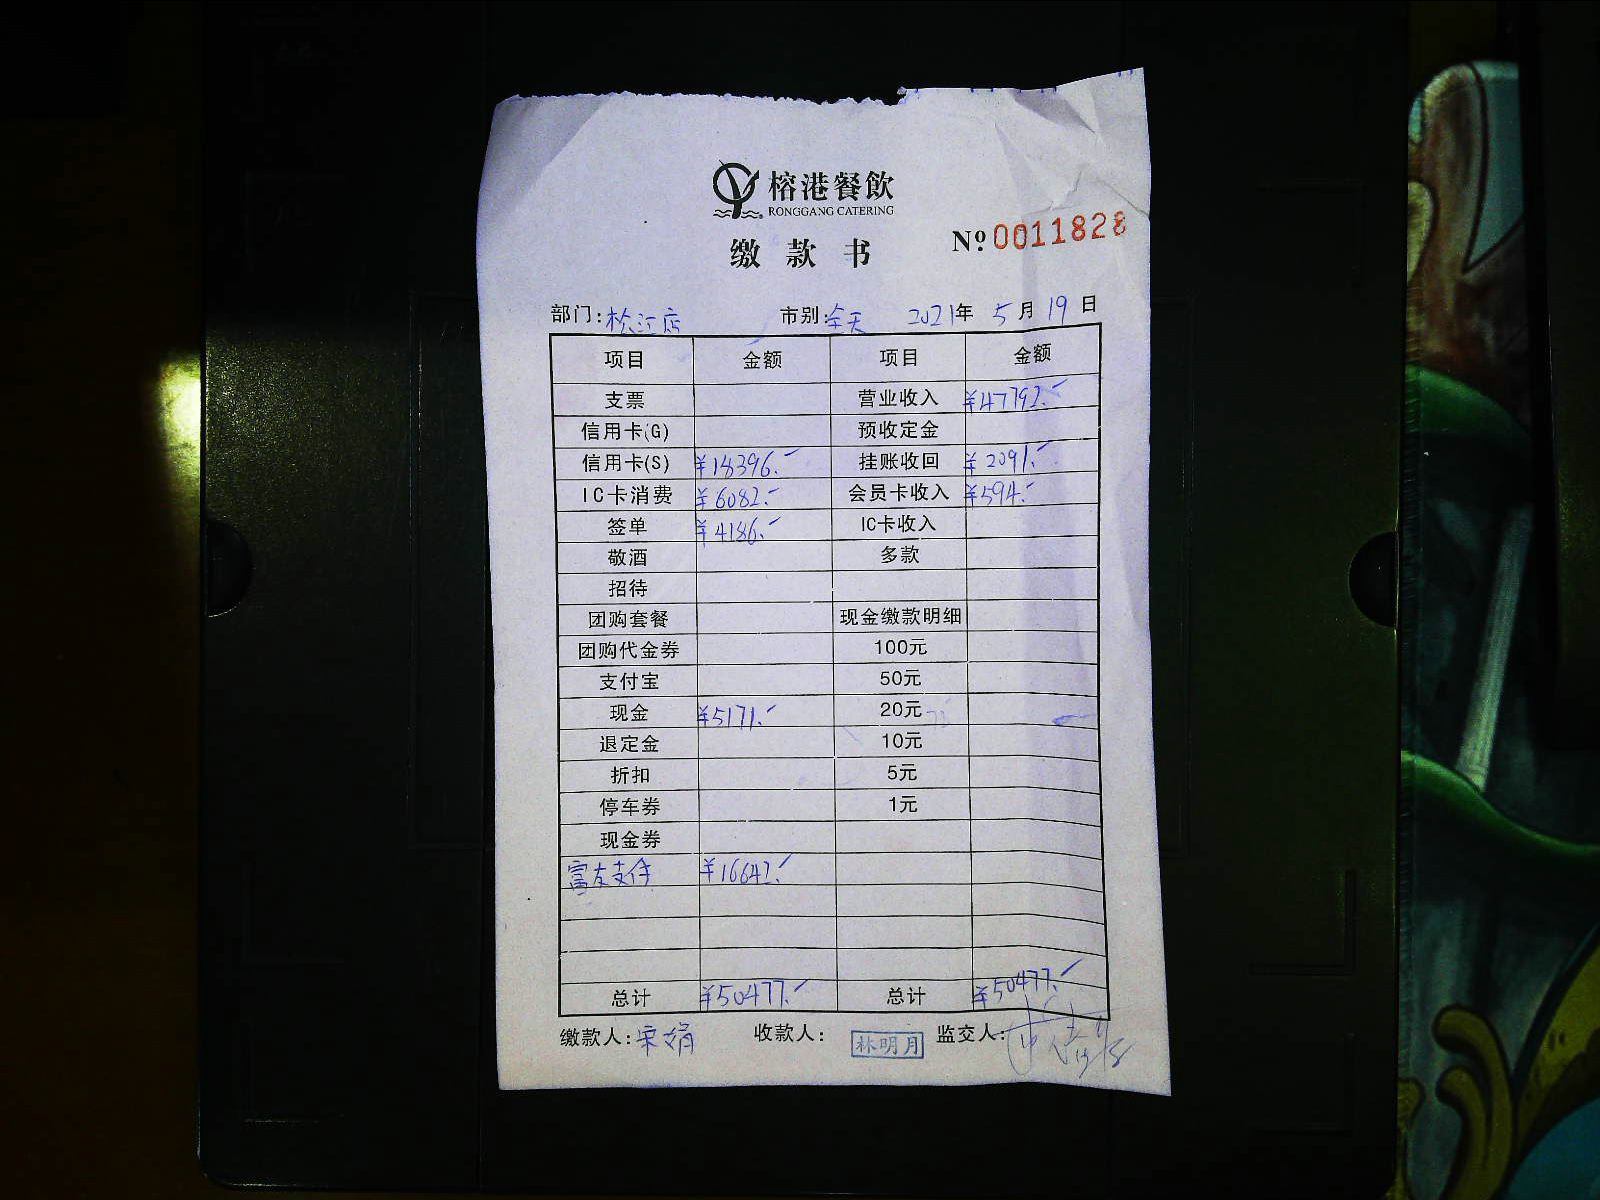 榕港餐飲
RONGGANG CATERING
缴款书 № 0011828
部门:松江店 市别:全天 2021年 5月19日
项目 金额 项目 金额
支票 营业收入 ¥47792.-
信用卡(G) 预收定金
信用卡(S) ¥18396.- 挂账收回 ¥2091.-
IC卡消费 ¥6082.- 会员卡收入 ¥594.-
签单 ¥4186.- IC卡收入
敬酒 多款
招待
团购套餐 现金缴款明细
团购代金券 100元
支付宝 50元
现金 ¥5171.- 20元
退定金 10元
折扣 5元
停车券 1元
现金券
富友支付 ¥16642.-
总计 ¥50477.- 总计 ¥50477.-
缴款人:宋娟 收款人: 林明月 监交人: